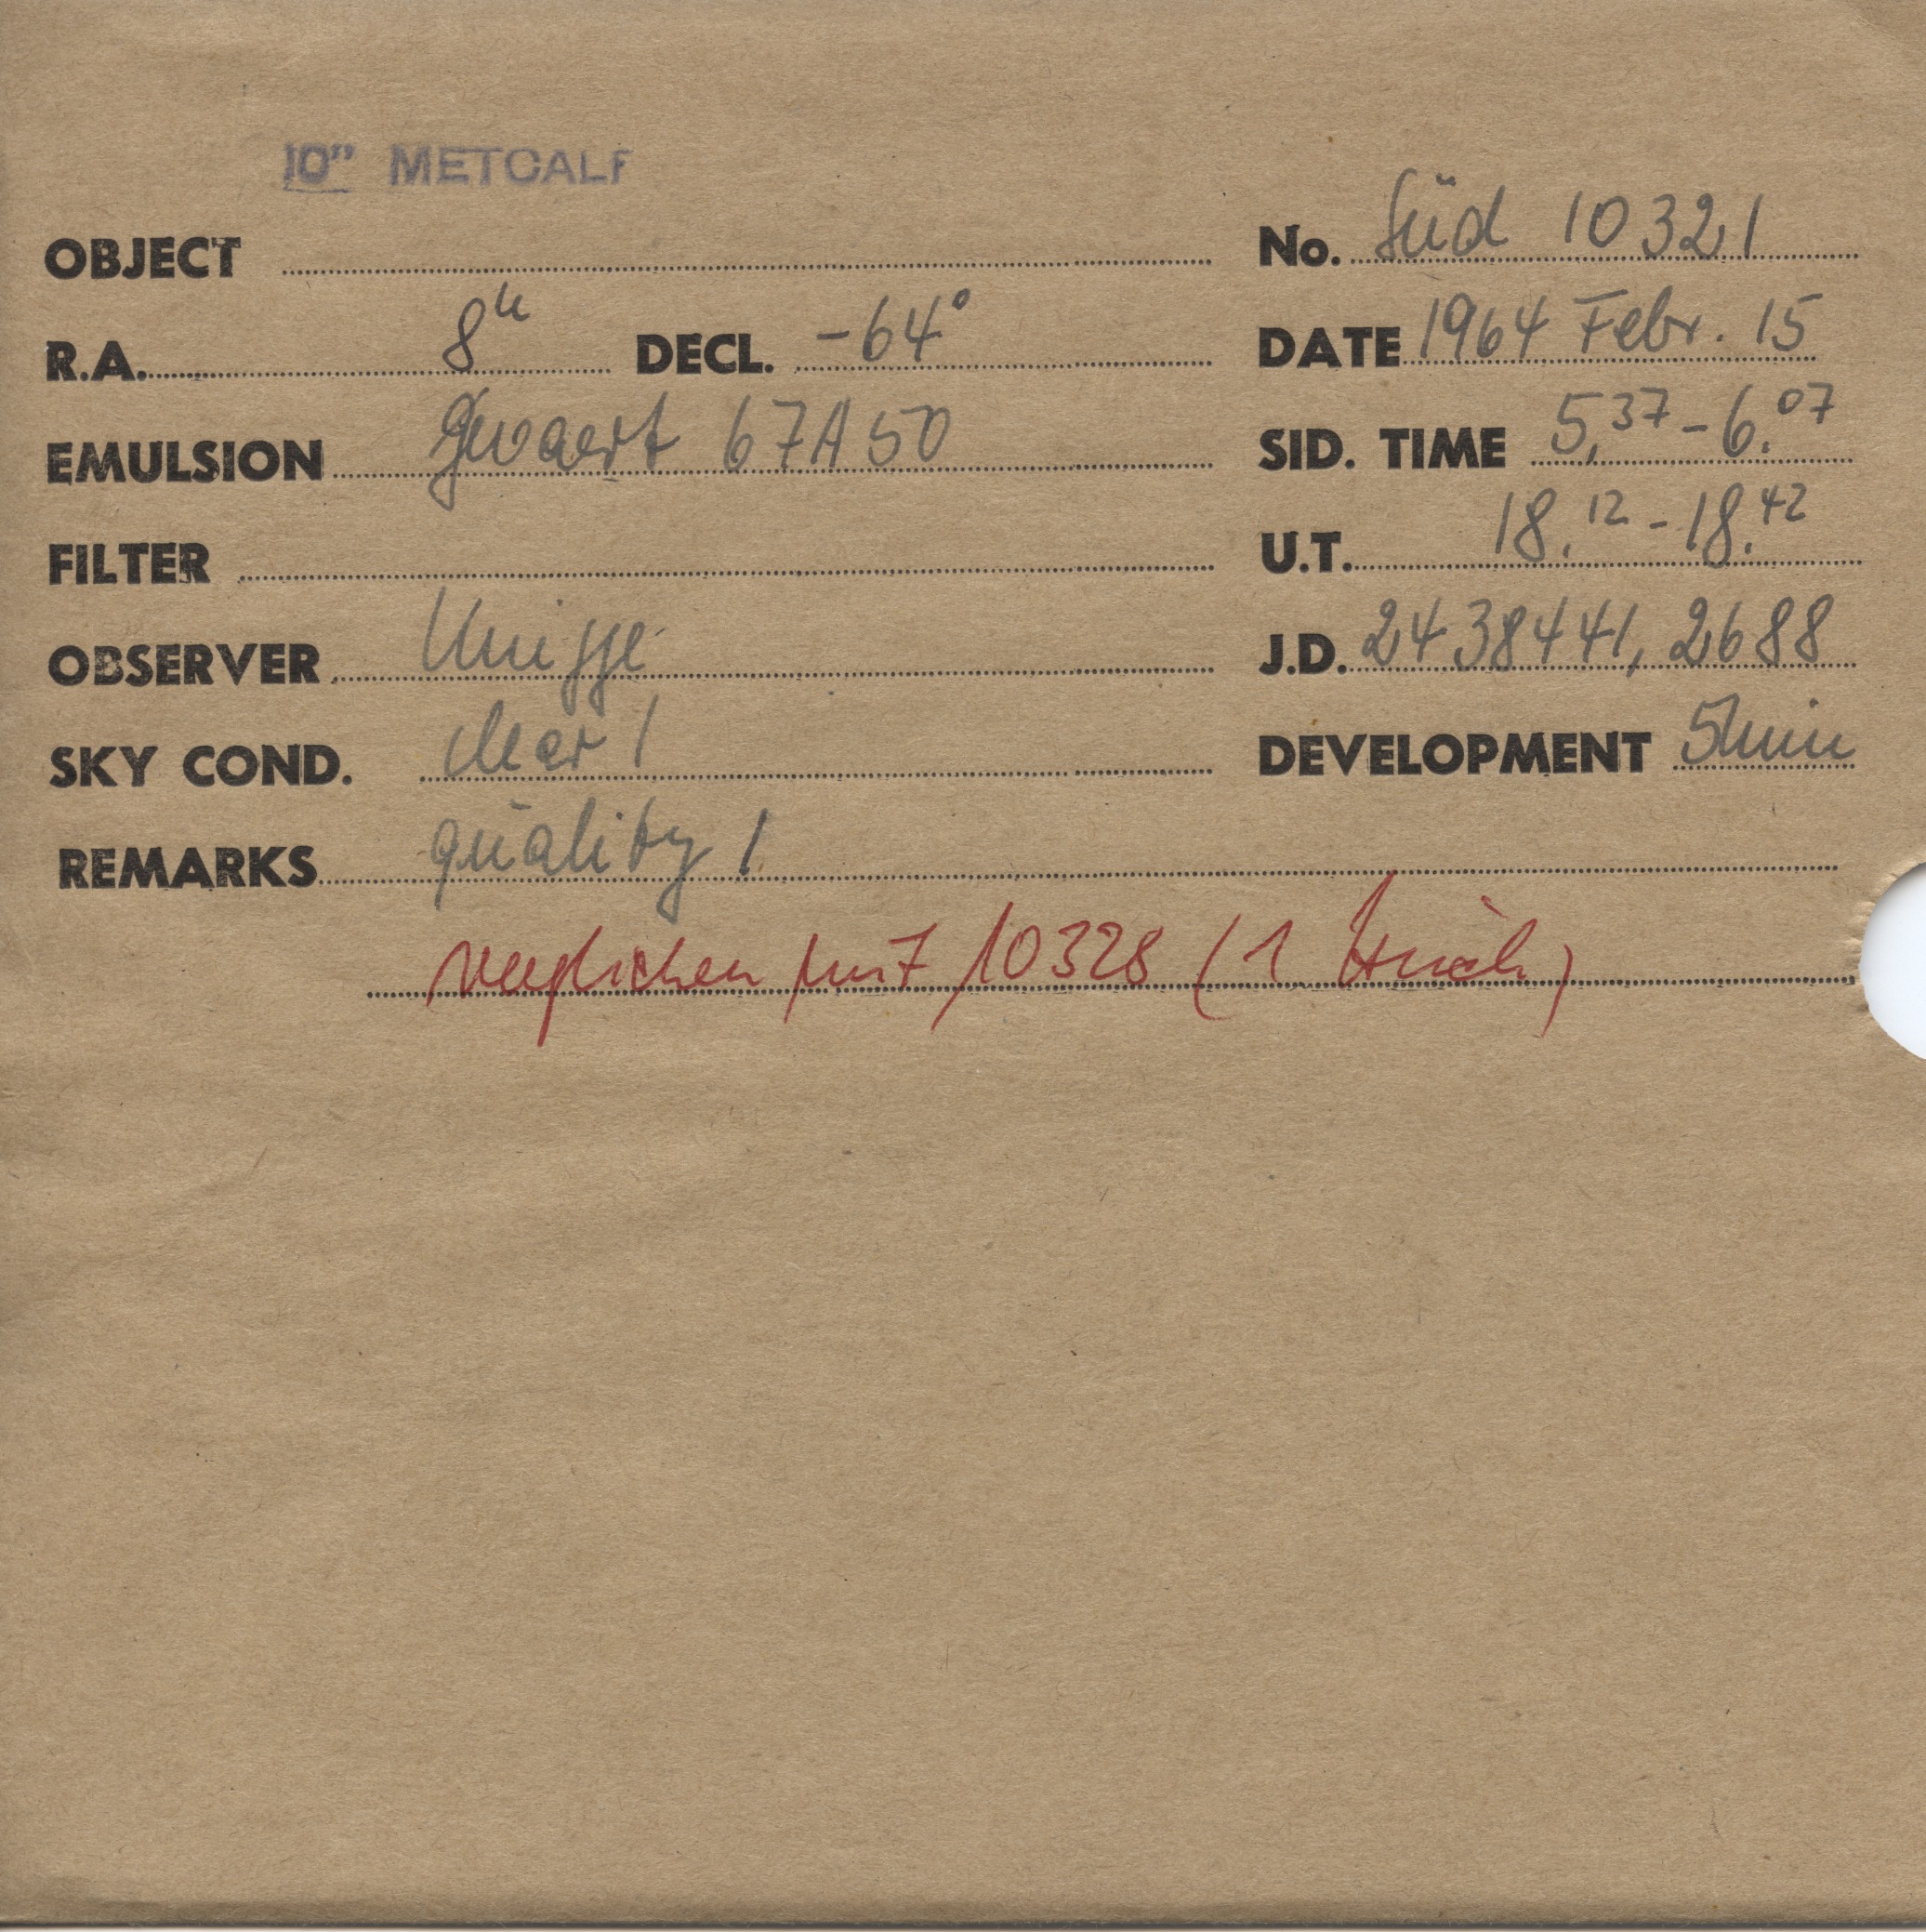 10" METCALF
OBJECT
No. Süd 10321
R.A. 8h DECL. -64°
DATE 1964 Febr. 15
EMULSION Gevaert 67A50
SID. TIME 5,37 - 6.07
FILTER
U.T. 18.12 - 18.42
OBSERVER Knigge
J.D. 2438441,2688
SKY COND. clear 1
DEVELOPMENT 5min
REMARKS quality 1
verglichen mit 10328 (1